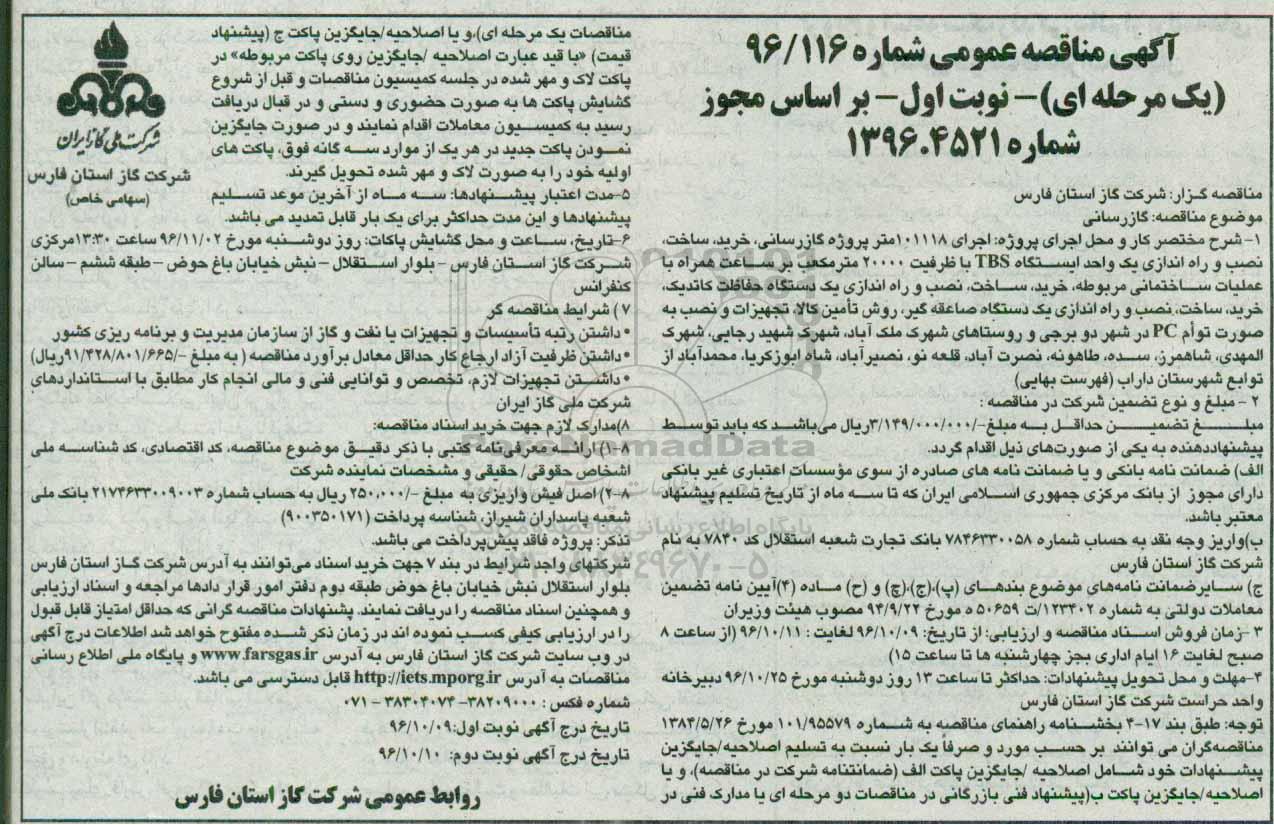 آگهی مناقصه عمومی شماره ۹۶/۱۱۶
(یک مرحله ای) – نوبت اول – بر اساس مجوز
شماره ۱۳۹۶.۴۵۲۱
مناقصه گزار: شرکت گاز استان فارس
موضوع مناقصه: گازرسانی
۱- شرح مختصر کار و محل اجرای پروژه: اجرای ۱۰۱۱۱۸متر پروژه گازرسانی، خرید، ساخت،
نصب و راه اندازی یک واحد ایستگاه TBS با ظرفیت ۲۰۰۰۰ مترمکعب بر ساعت همراه با
عملیات ساختمانی مربوطه، خرید، ساخت، نصب و راه اندازی یک دستگاه حفاظت کاتدیک،
خرید، ساخت، نصب و راه اندازی یک دستگاه صاعقه گیر، روش تأمین کالا، تجهیزات و نصب به
صورت توأم PC در شهر دو برجی و روستاهای شهرک ملک آباد، شهرک شهید رجایی، شهرک
المهدی، شاهمرز، سده، طاهونه، نصرت آباد، قلعه نو، نصیرآباد، شاه ابوزکریا، محمدآباد از
توابع شهرستان داراب (فهرست بهایی)
۲ - مبلغ و نوع تضمین شرکت در مناقصه :
مبلغ تضمین حداقل به مبلغ-/۳/۱۴۹/۰۰۰/۰۰۰ریال می‌باشد که باید توسط
پیشنهاددهنده به یکی از صورت‌های ذیل اقدام گردد.
الف) ضمانت نامه بانکی و یا ضمانت نامه های صادره از سوی مؤسسات اعتباری غیر بانکی
دارای مجوز از بانک مرکزی جمهوری اسلامی ایران که تا سه ماه از تاریخ تسلیم پیشنهاد
معتبر باشد.
ب)واریز وجه نقد به حساب شماره ۷۸۴۶۳۳۰۰۵۸ بانک تجارت شعبه استقلال کد ۷۸۴۰ به نام
شرکت گاز استان فارس
ج) سایرضمانت نامه‌های موضوع بندهای (پ)،(ج)،(چ) و (ح) ماده (۴)آیین نامه تضمین
معاملات دولتی به شماره ۱۲۳۴۰۲/ت ۵۰۶۵۹ ه مورخ ۹۴/۹/۲۲ مصوب هیئت وزیران
۳ -زمان فروش اسناد مناقصه و ارزیابی: از تاریخ: ۹۶/۱۰/۰۹ لغایت : ۹۶/۱۰/۱۱ (از ساعت ۸
صبح لغایت ۱۶ ایام اداری بجز چهارشنبه ها تا ساعت ۱۵)
۴-مهلت و محل تحویل پیشنهادات: حداکثر تا ساعت ۱۳ روز دوشنبه مورخ ۹۶/۱۰/۲۵ دبیرخانه
واحد حراست شرکت گاز استان فارس
توجه: طبق بند ۱۷-۴ بخشنامه راهنمای مناقصه به شماره ۱۰۱/۹۵۵۷۹ مورخ ۱۳۸۴/۵/۲۶
مناقصه‌گران می توانند بر حسب مورد و صرفاً یک بار نسبت به تسلیم اصلاحیه/جایگزین
پیشنهادات خود شامل اصلاحیه /جایگزین پاکت الف (ضمانتنامه شرکت در مناقصه)، و یا
اصلاحیه/جایگزین پاکت ب(پیشنهاد فنی بازرگانی در مناقصات دو مرحله ای یا مدارک فنی در
مناقصات یک مرحله ای)،و یا اصلاحیه/جایگزین پاکت ج (پیشنهاد
قیمت) «با قید عبارت اصلاحیه /جایگزین روی پاکت مربوطه» در
پاکت لاک و مهر شده در جلسه کمیسیون مناقصات و قبل از شروع
گشایش پاکت ها به صورت حضوری و دستی و در قبال دریافت
رسید به کمیسیون معاملات اقدام نمایند و در صورت جایگزین
نمودن پاکت جدید در هر یک از موارد سه گانه فوق، پاکت های
اولیه خود را به صورت لاک و مهر شده تحویل گیرند.
شرکت ملی گاز ایران
شرکت گاز استان فارس
(سهامی خاص)
۵-مدت اعتبار پیشنهادها: سه ماه از آخرین موعد تسلیم
پیشنهادها و این مدت حداکثر برای یک بار قابل تمدید می باشد.
۶-تاریخ، ساعت و محل گشایش پاکات: روز دوشنبه مورخ ۹۶/۱۱/۰۲ ساعت ۱۳:۳۰مرکزی
شرکت گاز استان فارس – بلوار استقلال – نبش خیابان باغ حوض – طبقه ششم – سالن
کنفرانس
۷) شرایط مناقصه گر
• داشتن رتبه تأسیسات و تجهیزات یا نفت و گاز از سازمان مدیریت و برنامه ریزی کشور
• داشتن ظرفیت آزاد ارجاع کار حداقل معادل برآورد مناقصه ( به مبلغ -/۹۱/۴۲۸/۸۰۱/۶۶۵ریال)
• داشتن تجهیزات لازم، تخصص و توانایی فنی و مالی انجام کار مطابق با استانداردهای
شرکت ملی گاز ایران
۸)مدارک لازم جهت خرید اسناد مناقصه:
۸-۱) ارائه معرفی‌نامه کتبی با ذکر دقیق موضوع مناقصه، کد اقتصادی، کد شناسه ملی
اشخاص حقوقی/ حقیقی و مشخصات نماینده شرکت
۸-۲) اصل فیش واریزی به مبلغ -/۲۵۰،۰۰۰ ریال به حساب شماره ۲۱۷۴۶۳۳۰۰۹۰۰۳ بانک ملی
شعبه پاسداران شیراز، شناسه پرداخت (۹۰۰۳۵۰۱۷۱)
تذکر: پروژه فاقد پیش‌پرداخت می باشد.
شرکتهای واجد شرایط در بند ۷ جهت خرید اسناد می‌توانند به آدرس شرکت گاز استان فارس
بلوار استقلال نبش خیابان باغ حوض طبقه دوم دفتر امور قرار دادها مراجعه و اسناد ارزیابی
و همچنین اسناد مناقصه را دریافت نمایند. پشنهادات مناقصه گرانی که حداقل امتیاز قابل قبول
را در ارزیابی کیفی کسب نموده اند در زمان ذکر شده مفتوح خواهد شد اطلاعات درج آگهی
در وب سایت شرکت گاز استان فارس به آدرس www.farsgas.ir و پایگاه ملی اطلاع رسانی
مناقصات به آدرس http://iets.mporg.ir قابل دسترسی می باشد.
شماره فکس : ۳۸۲۰۹۰۰۰- ۳۸۳۰۴۰۷۴ - ۰۷۱
تاریخ درج آگهی نوبت اول:۹۶/۱۰/۰۹
تاریخ درج آگهی نوبت دوم: ۹۶/۱۰/۱۰
روابط عمومی شرکت گاز استان فارس
ParsNamadData